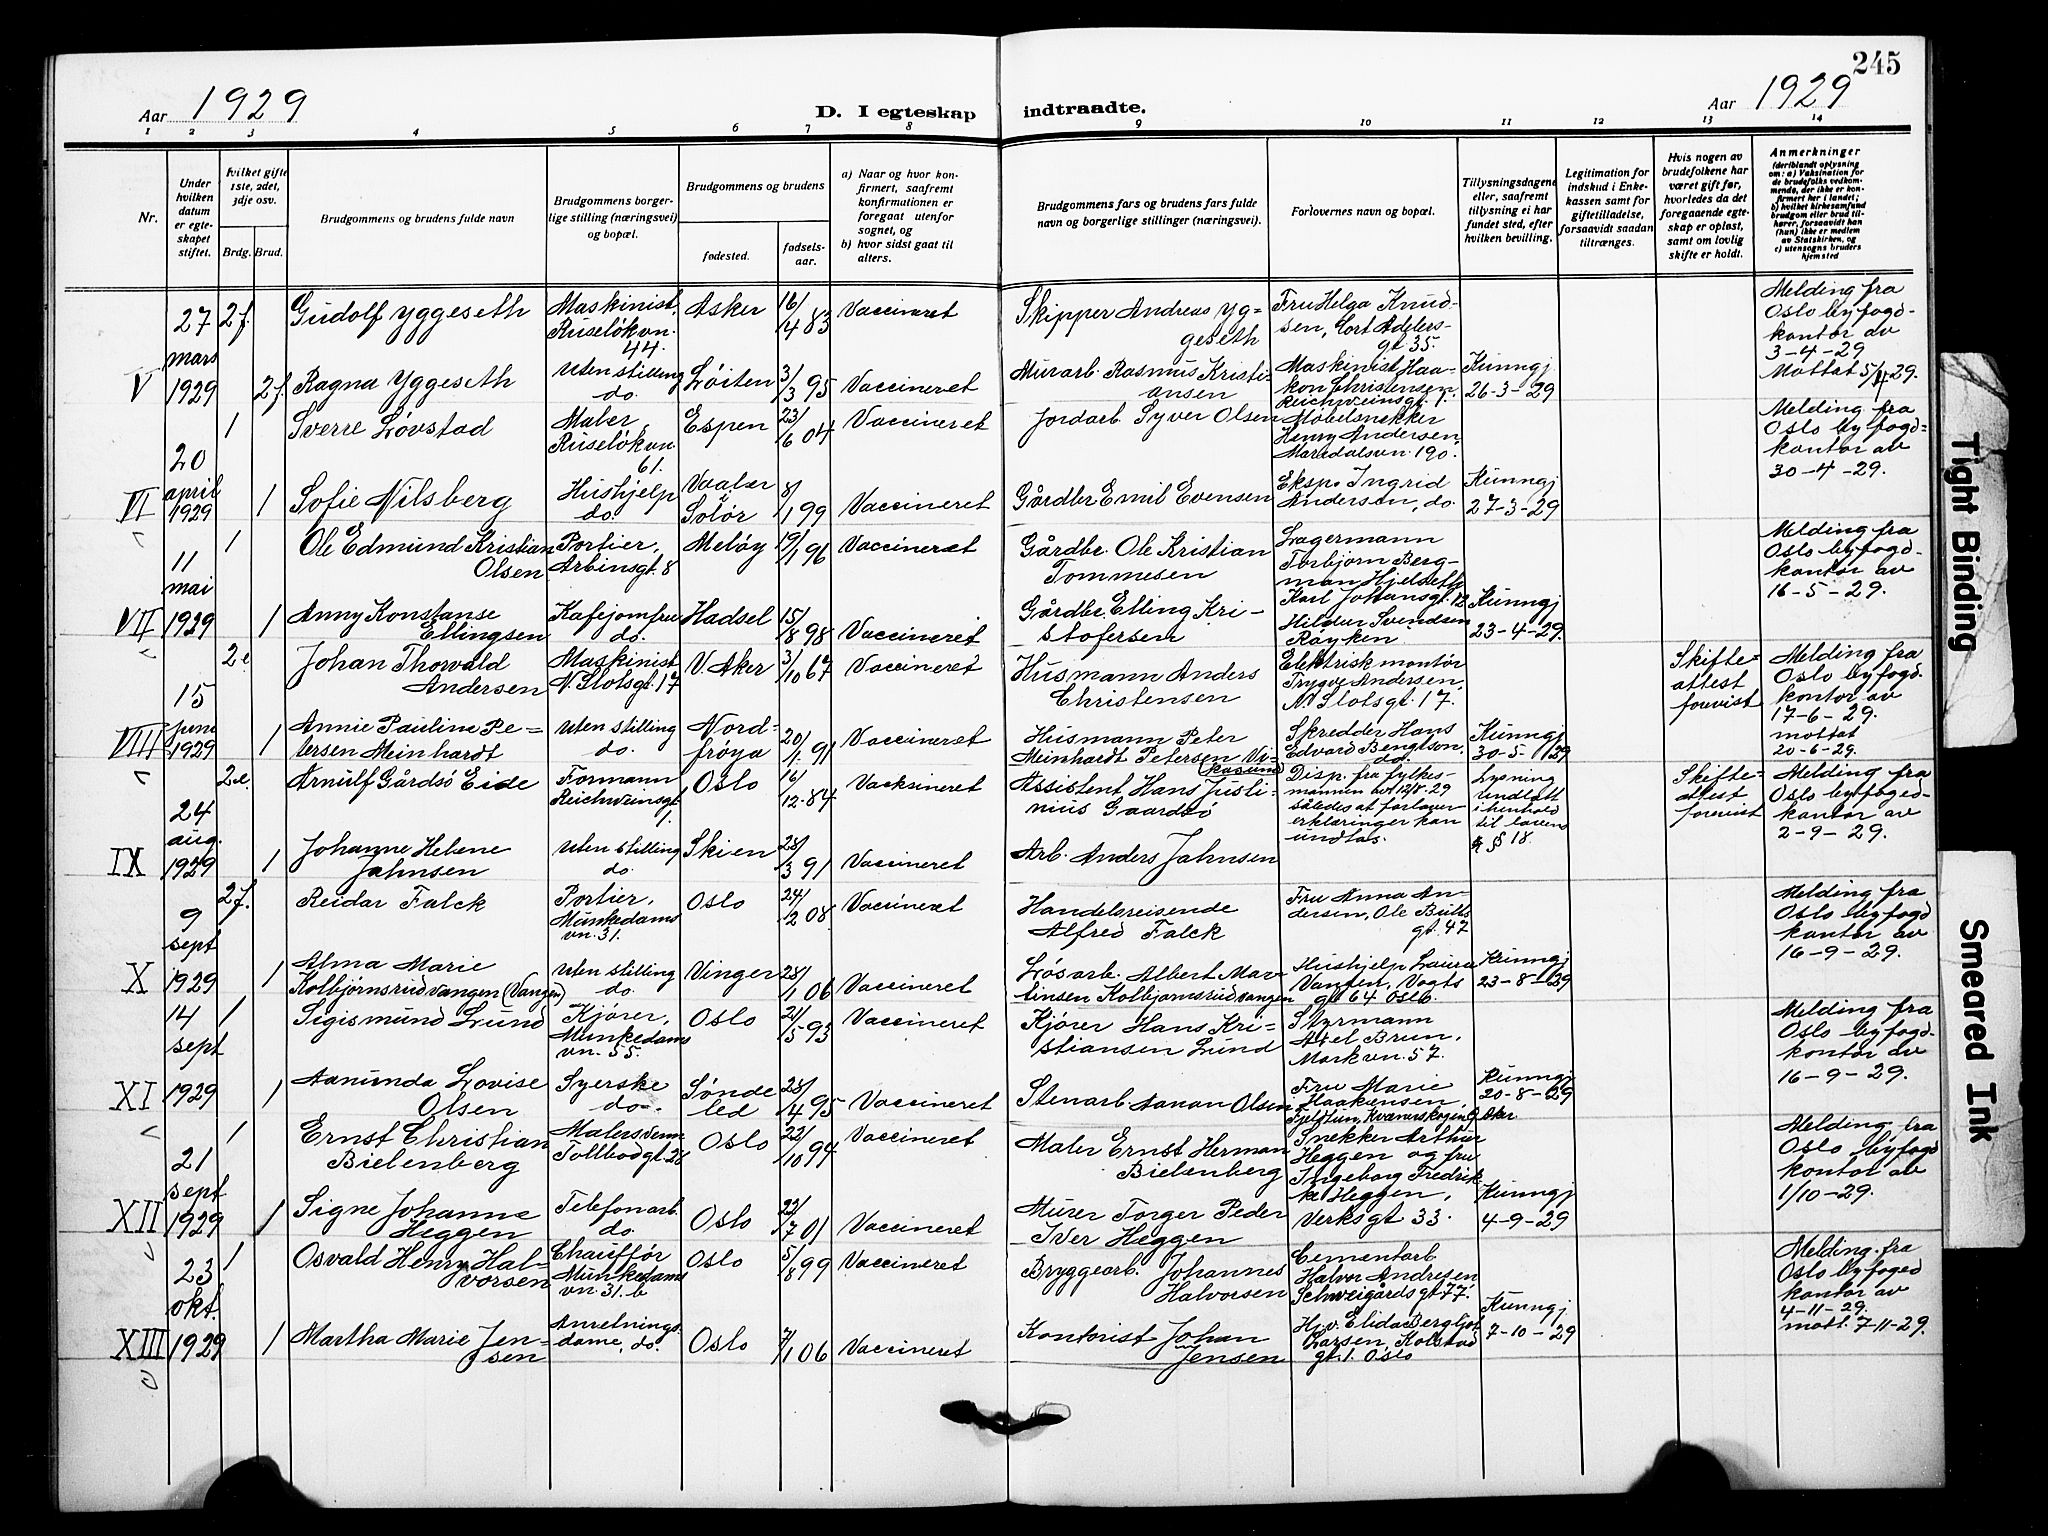 245
Aar 1929
D. I egteskap indtraadte.
Aar 1929
1 2 3 4 5 6 7 8 9 10 11 12 13 14
Nr.
Under hvilken datum er egteskapet stiftet.
hvilket gifte 1ste, 2det, 3dje osv.
Brdg. Brud.
Brudgommens og brudens fulde navn
Brudgommens borgerlige stilling (næringsvei) og bopæl.
Brudgommens og brudens
fødested.
fødselsaar.
a) Naar og hvor konfirmert, saafremt konfirmationen er foregaat utenfor sognet, og
b) hvor sidst gaat til alters.
Brudgommens fars og brudens fars fulde navn og borgerlige stillinger (næringsvei).
Forlovernes navn og bopæl.
Tillysningsdagene eller, saafremt tillysning ei har fundet sted, efter hvilken bevilling.
Legitimation for indskud i Enkekassen samt for giftetilladelse, forsaavidt saadan tiltrænges.
Hvis nogen av brudefolkene har været gift før, hvorledes da det foregaaende egteskap er opløst, samt om lovlig skifte er holdt.
Anmerkninger
(deriblandt oplysning om: a) Vaksination for de brudefolks vedkommende, der ikke er konfirmert her i landet; b) hvilket kirkesamfund brudgom eller brud tilhører, forsaavidt han (hun) ikke er medlem av Statskirken, og c) utensogns bruders hjemsted
V
27 mars 1929
2f.
Gudolf Yggeseth
Maskinist, Ruseløkvn. 44.
Asker
16/14 83
Vaccineret
Skipper Andreas Yggeseth
Fru Helga Knudsen, Cort Adelersgt 35.
Melding fra Oslo byfogdkontor av 3-4-29 Mottat 5/4 29.
2f.
Ragna Yggeseth
Uten stilling do.
Løiten
3/3 95
Vaccineret
Murarb. Rasmus Kristiansen
Maskinist Haakon Christensen Reichweinsgt. 1.
Kunngj 26-3-29
VI
20 april 1929
1
Sverre Løvstad
Maler, Ruseløkvn. 61.
Espen
23/6 04
Vaccineret
Jordarb. Syver Olsen
Møbelsnekker Henry Andersen, Maridalsvn. 190.
Melding fra Oslo byfogdkontor av 30-4-29.
1
Sofie Nilsberg
Hushjelp do.
Vaaler i Solør
8/1 99
Vaccineret
Gårdbr Emil Evensen
Eksp. Ingrid Andersen, do.
Kunngj 27-3-29
VII
11 mai 1929
1
Ole Edmund Kristian Olsen
Portier, Arbinsgt. 8
Meløy
19/1 96
Vaccineret
Gårdbr. Ole Kristian Tommesen
Lagermann Torbjørn Bergman Hjelseth Karl Johansgt. 12
Melding fra Oslo byfogdkontor av 16-5-29.
1
Anny Konstanse Ellingsen
Kafejomfru do.
Hadsel
15/8 98
Vaccineret
Gårdbr. Elling Kristofersen
Hildur Svendsen Røyken
Kunngj 23-4-29.
VIII
15 juni 1929
2e
Johan Thorvald Andersen
Maskinist N. Slotsgt. 17
V. Aker
3/10 67
Vaccineret
Husmann Anders Christensen
Elektrisk montør Trygve Andersen, N. Slotsgt. 17.
Skifteattest forevist
Melding fra Oslo byfogd. kontor av 17-6-29. mottat 20-6-29.
1
Annie Pauline Petersen Meinhardt
Uten stilling do.
Nordfrøya
20/1 91
Vaccineret
Husmann Peter Meinhardt Petersen
Skredder Hans Edvard Bengtson, do.
Kunngj 30-5-1929
IX
24 aug. 1929
2e.
Arnulf Gårdsø Eide
Formann Reichweinsgt 1.
Oslo
16/12 84
Vacksineret
Assistent Hans Justinius Gaardsø
Disp. fra fylkesmannen av 12/8-29 således at forlovererklæringer kan undlas.
Lysning undlatt i henhold til lovens § 18.
Skifteattest forevist
Melding fra Oslo byfogedkontor av 2-9-29.
1
Johanne Helene Jahnsen
Uten stilling do.
Skien
28/3 91
Vaccineret
Arb. Anders Jahnsen
X
9 sept 1929
2f.
Reidar Falck
Portier, Munkedamsvn. 31.
Oslo
24/2 08
Vaccineret
Handelsreisende Alfred Falck
Fru Anna Andersen, Ole Bullsgt. 47
Melding fra Oslo byfogd kontor av 16-9-29.
1
Alma Marie Kolbjørnsrudvangen (Vangen)
Uten stilling do.
Vinger
28/1 06
Vaccineret
Løsarb. Albert Martinsen Kolbjørnsrudvangen
Hushjelp Laura Vangen, Vogts gt 64 Oslo.
Kunngj 23-8-1929
XI
14 sept 1929
1
Sigismund Lund
Kjører, Munkedamsvn. 55.
Oslo
21/5 93
Vaccineret
Kjører Hans Kristiansen Lund
Styrmann Axel Brun, Markvn. 57.
Melding fra Oslo byfogdkontor av 16-9-29.
1
Aanunda Lovise Olsen
Syerske do.
Søndeled
28/4 95
Vaccineret
Stenarb Aanon Olsen
Fru Marie Haakensen, Fjeldtun, Kværnerskogen Ø. Aker
Kunngj 20-8-29
XII
21 sept 1929
1
Ernst Christian Bielenberg
Malersvenn Tollbodgt 28
Oslo
22/10 94
Vaccineret
Maler Ernst Herman Bielenberg
Snekker Arthur Heggen og fru Ingeborg Fredrikke Heggen, Verksgt 33.
Melding fra Oslo byfogd kontor av 1/10-29.
1
Signe Johanne Heggen
Telefonarb. do.
Oslo
22/7 01
Vaccineret
Murer Torger Peder Iver Heggen
Kunngj 4-9-29
XIII
23 okt. 1929
1
Osvald Henry Halvorsen
Chauffør Munkedamsvn. 31. b
Oslo
5/8 99
Vaccineret
Bryggearb. Johannes Halvorsen
Cementarb. Halvor Andresen Schweigårdsgt. 77.
Melding fra Oslo byfoged kontor av 4-11-29. mott. 7-11-29.
1
Martha Marie Jensen
Anretningsdame, do.
Oslo
7/1 06
Vaccineret
Kontorist Johan Jensen
Hj.v. Elida Bergljot Larsen, Kolstadgt. 1. Oslo
Kunngj 7-10-29
Tight Binding
Smeared Ink